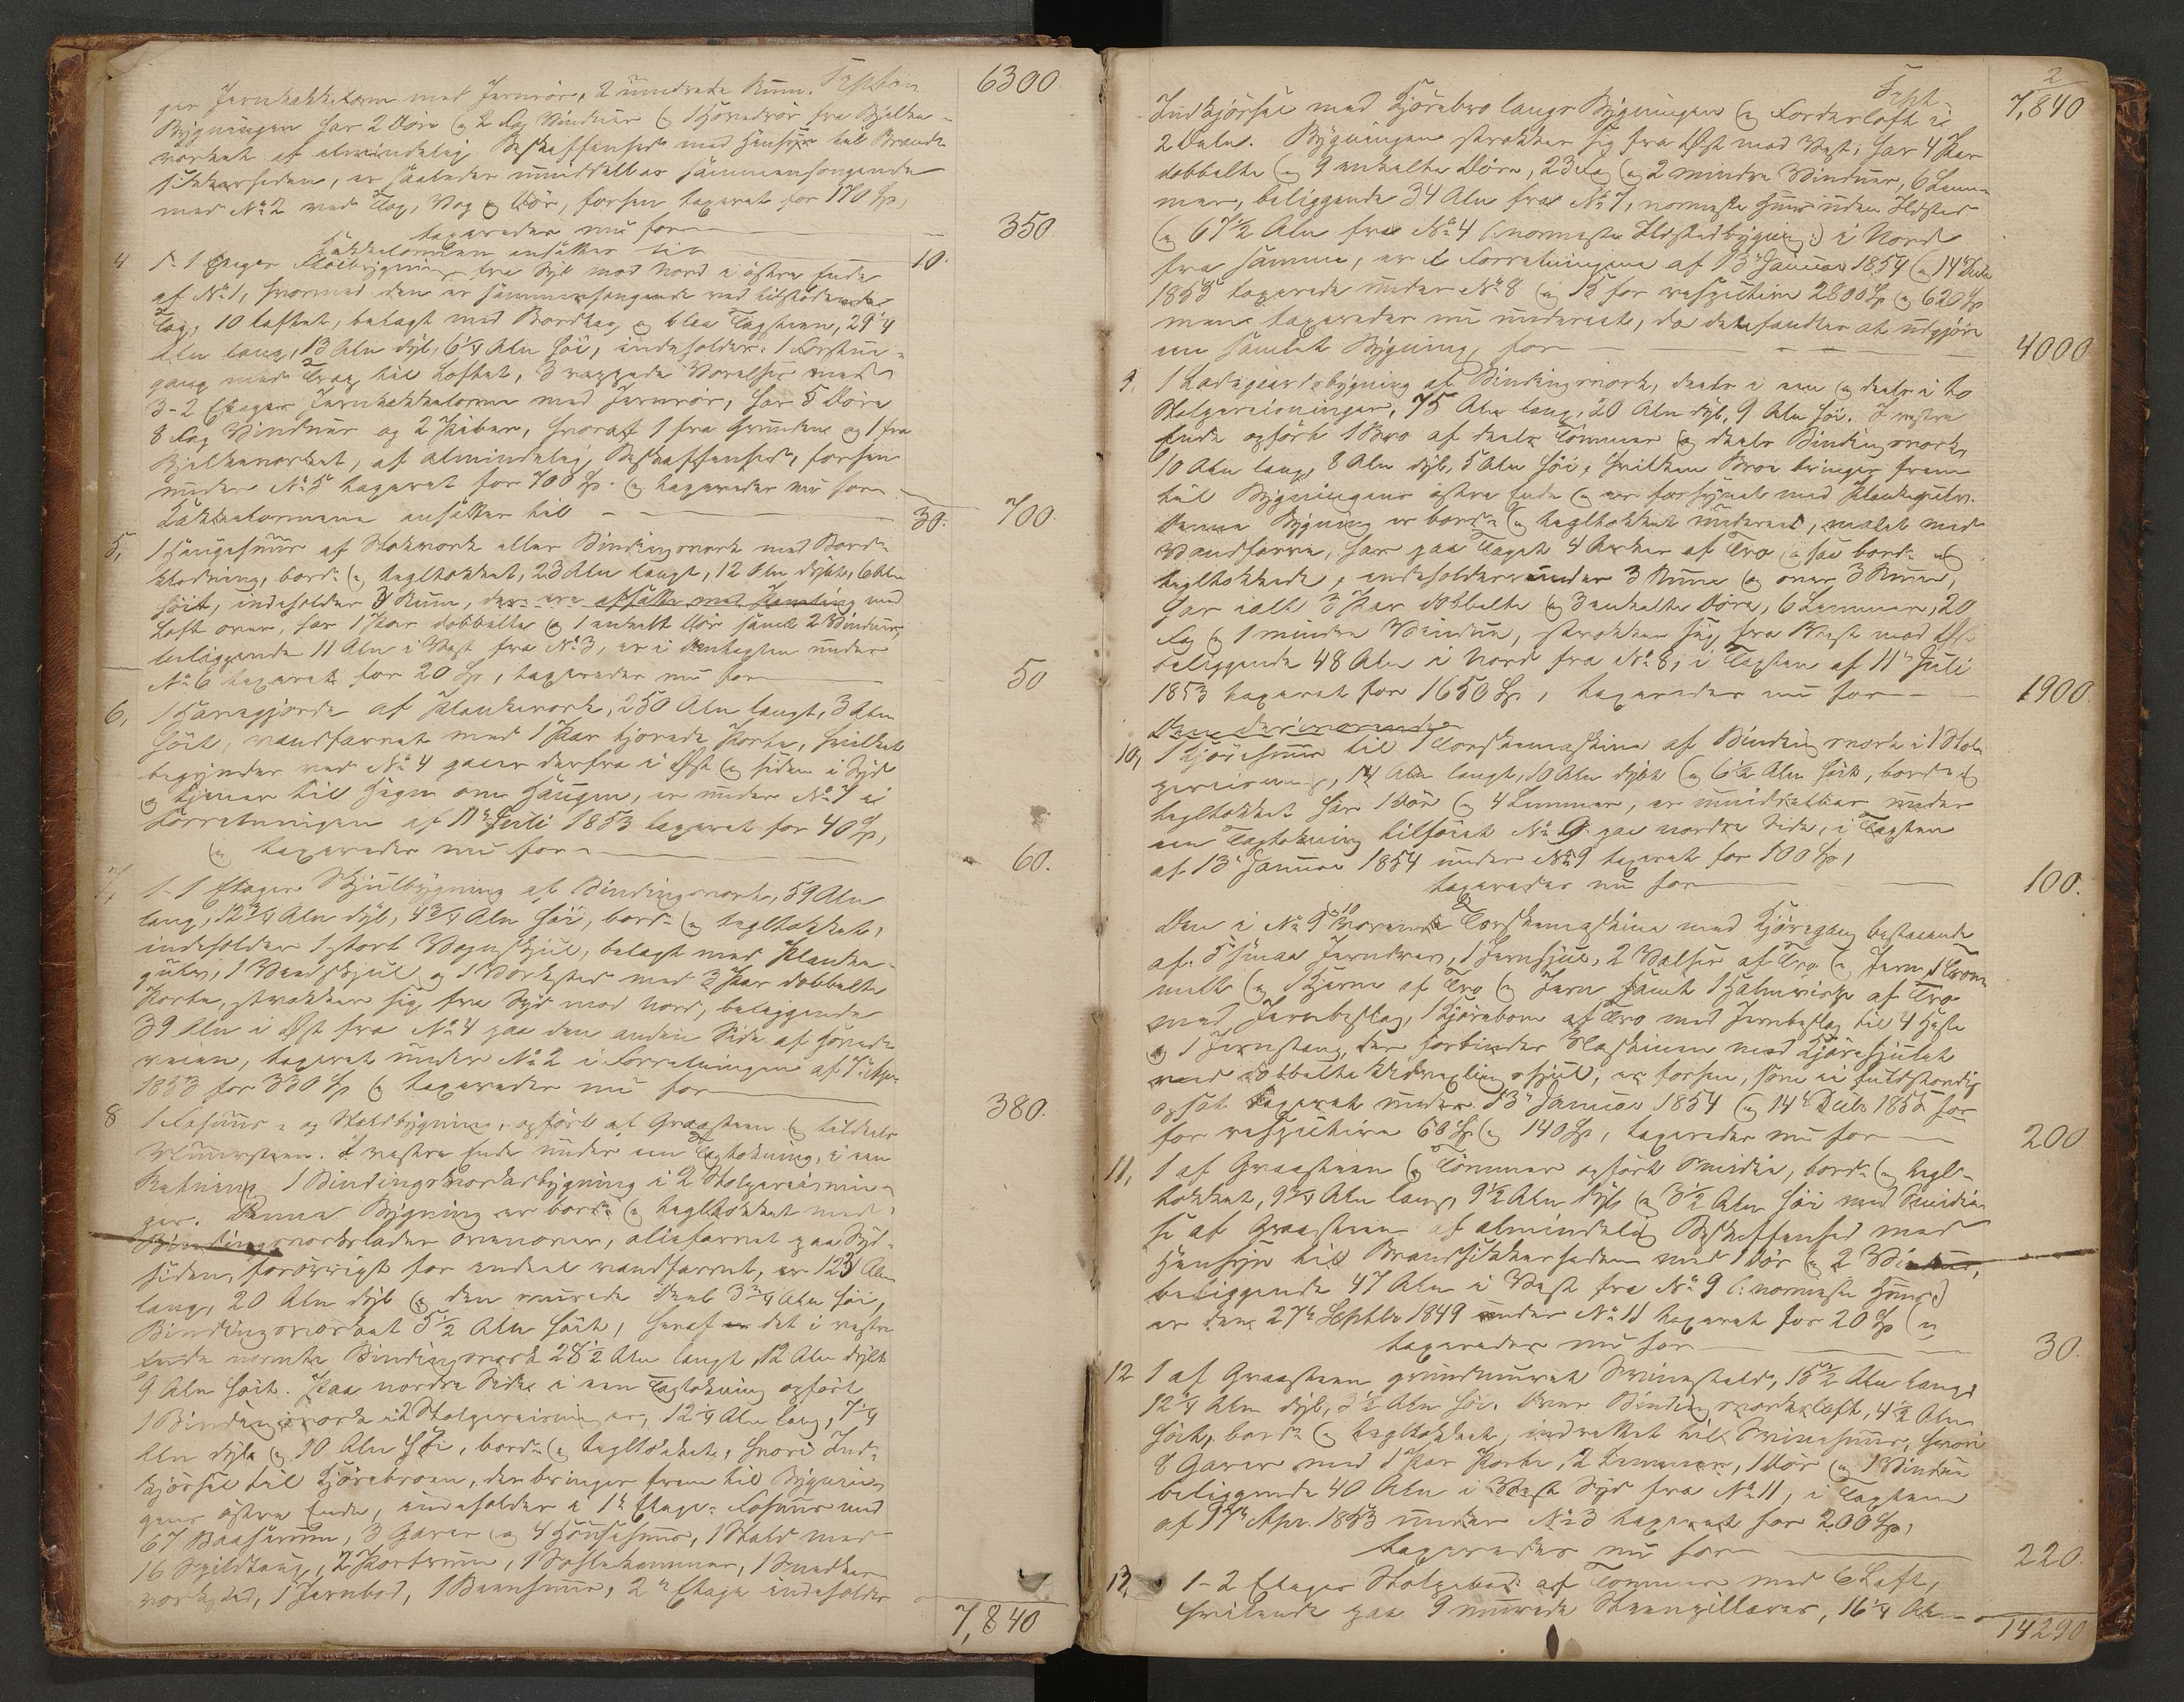 Transp:
6300
ger Jernkakkelovn med Jernrör, 2 mindre Rum.
Bygningen har 2 Döre og 2 Fag Vinduer og 1 Skorsteens rör fra Bjelke-
værket af almindelig Beskaffenhed med Hensyn til Brand-
sikkerheden, er saaledes umiddelbar sammenhængende
med No 2 ved Tag, Væg og Dör, forhen taxeret for 170 Sp,
taxeredes nu for 350.
Kakkelovnen ansættes til 10.
4 1-1 Etages Flöibygning fra Syd mod Nord i östre Ende
af No 1, hvormed den er sammenhængende ved tilstödende
Tag, 10 loftet, belagt med Bordtag og blaa Tagsteen, 29 1/4
Alen lang, 13 Alen dyb, 6 1/4 Alen höi, indeholder: 1 Forstue-
gang med Trap til Loftet, 3 Værelser med
3-2 Etages Jernkakkelovne med Jernrör, har 5 Döre
8 Fag Vinduer og 2 Piber, hvoraf 1 fra Grunden og 1 fra
Bjelkeværket, af almindelig Beskaffenhed, forhen
under No 5 taxeret for 700 Sp. og taxeredes nu for 700.
Kakkelovnene ansættes til 30.
5, 1 Haugehuus af Stokværk eller Bindingsværk med Bord-
klædning, bord- og tegltækket, 23 Alen langt, 12 Alen dybt, 6 Alen
höit, indeholder 3 Rum, med
Loft over, har 1 Par dobbelte og 1 enkelt Dör samt 2 Vinduer,
beliggende 11 Alen i Vest fra No 3, er i under
No 6 taxeret for 20 Sp, taxeredes nu for 50
6, 1 Havegjærde af Plankeværk, 250 Alen langt, 3 Alen
höit, vandfarvet med 1 Par Porte, hvilket
begynder ved No 4 gaaer derfra i Øst og siden i Syd
og tjener til Hegn om Haugen, er under No 7 i
Forretningen af 11te Juli 1853 taxeret for 40 Sp,
og taxeredes nu for 60.
7, 1-1 Etages Skjulbygning af Bindingsværk, 59 Alen
lang, 12 3/4 Alen dyb, 4 3/4 Alen höi, bord- og tegltækket,
indeholder 1 stort Vognskjul, belagt med Planke-
gulv, 1 Vedskjul og 1 Værksted med 3 Par dobbelte
Porte, strækker sig fra Syd mod Nord, beliggende
39 Alen i Øst fra No 4 paa den anden Side af Hoved-
veien, taxeret under No 2 i Forretningen af
1853 for 330 Sp og taxeredes nu for 380.
8 1 Fæhuus- og Staldbygning, opfört af Graasteen og tildeels
Muursteen. I vestre Ende under een Tagtækning, i een
Retning 1 Bindingsværksbygning i 2 Stolpereisnin-
ger. Denne Bygning er bord- og tegltækket med
Bindingsværkslader ovenover, oliefarvet paa Syd-
siden, forövrigt for endeel vandfarvet, er 123 Alen
lang, 20 Alen dyb og den murede deel 3 3/4 Alen höi,
Bindingsværket 5 1/2 Alen höit, heraf er det i vestre
Ende nævnte Bindingsværk 28 1/2 Alen langt, 12 Alen dybt
9 Alen höit. Paa nordre Side i een Tagtækning opfört
1 Bindingsværk i 2 Stolpereisninger, 12 1/4 Alen lang, 7 1/4
Alen dyb og 10 Alen höi, bord- og tegltækket, hvori Ind-
kjörsel til Kjörebroen, der bringer frem til Bygnin-
gens östre Ende, indeholder i 1te Etage: Fæhuus med
67 Baaserum, 3 Garer og 4 Hönsehuus, 1 Stald med
16 Spildtoug, 2 Portrum, 1 Sælekammer, 1 Snedker-
værksted, 1 Jernbod, 1 , 2den Etage indeholder
7,840
2
Transp:
7,840
Indkjörsel med Kjörebro langs Bygningen og Foderloft i
2 Dele. Bygningen strækker sig fra Øst mod Vest, har 4 Par
dobbelte og 9 enkelte Döre, 23 Fag og 2 mindre Vinduer, 6 Lem-
mer, beliggende 34 Alen fra No 7, nærmeste Huus uden Ildsted
og 67 1/2 Alen fra No 4 (nærmeste Ildstedbygning:) i Nord
fra samme, er i Forretningerne af 13de Januar 1854 og 14de Decbr
1855 taxerede under No 8 og 15 for respective 2800 Sp og 620 Sp
men taxeredes nu undereet, da det fandtes at udgjöre
een samlet Bygning, for 4000
9, 1 Ladegaardsbygning af Bindingsværk, deels i een og deels i to
Stolpereisninger, 75 Alen lang, 20 Alen dyb, 9 Alen höi. I vestre
Ende opfört 1 Bro af deels Tömmer og deels Bindingsværk,
10 Alen lang, 8 Alen dyb, 5 Alen höi, hvilken Bro bringer frem
til Bygningens östre Ende og er forsynet med Plankegulv.
Denne Bygning er bord- og tegltækket undereet, malet med
Vandfarve, har paa Taget 4 Arker af Træ og saa bord- og
tegltækkede, indeholder under 3 Rum og over 3 Rum,
har ialt 3 Par dobbelte og 3 enkelte Döre, 6 Lemmer, 20
Fag og 1 mindre Vindue, strækker sig fra Vest mod Øst
beliggende 48 Alen i Nord fra No 8, i Taxten af 11te Juli
1853 taxeret for 1650 Sp, taxeredes nu for 1900.
Den deri værende
10, 1 Kjörehuus til 1 Tærskemaskine af Bindingsværk i 1 Stol-
pereisning, 14 Alen langt, 10 Alen dybt og 6 1/2 Alen höit, bord- og
tegltækket har 1 Dör og 4 Lemmer, er umiddelbar under
een Tagtækning tilföiet No 9 paa nordre Side, i Taxten
af 13de Januar 1854 under No 9 taxeret for 100 Sp,
taxeredes nu for 100.
Den i No 9 & 10 værende Tærskemaskine med Kjöregang bestaaende
af: 5 smaa Jerndrev, 1 Jernhjul, 2 Valser af Træ og Jern, 1 Trom-
melle og 1 Hjerne af Træ og Jern samt 1 Halmrist af Træ
med Jernbeslag, 1 Kjörebom af Træ med Jernbeslag til 4 Heste
og 1 Jernstang, der forbinder Maskinen med Kjörehjulet
med dobbelte Udvexlingshjul, er forhen, som ei fuldstændig
opsat taxeret under 13de Januar 1854 og 14de Decbr 1855 for
for respective 60 Sp og 140 Sp, taxeredes nu for 200
11, 1 af Graasteen og Tömmer opfört Smidie, bord- og tegl-
tækket, 9 3/4 Alen lang, 9 1/2 Alen dyb og 3 1/2 Alen höi med Smidies-
se af Graasteen af almindelig Beskaffenhed med
Hensyn til Brandsikkerheden med 1 Dör og 2 Vinduer,
beliggende 47 Alen i Vest fra No 9 (: nærmeste Huus:)
er den 27de Septbr 1849 under No 11 taxeret for 20 Sp og
taxeredes nu for 30.
12 1 af Graasteen grundmuret Svinestald, 15 1/2 Alen lang,
12 1/4 Alen dyb, 3 1/2 Alen höi. Over Bindingsværksloft, 4 1/2 Alen
höit, bord- og tegltækket, indrettet til Svinehuus, hvori
8 Garer med 1 Par Porte, 2 Lemmer, 1 Dör og 1 Vindue
beliggende 40 Alen i Vest Syd fra No 11, i Taxten
af Apr. 1853 under No 3 taxeret for 200 Sp,
taxeredes nu for 220.
13, 1-2 Etages Stolpebod af Tömmer med Loft,
hvilende paa 9 murede Steenpillarer, 16 1/4 Alen
14290